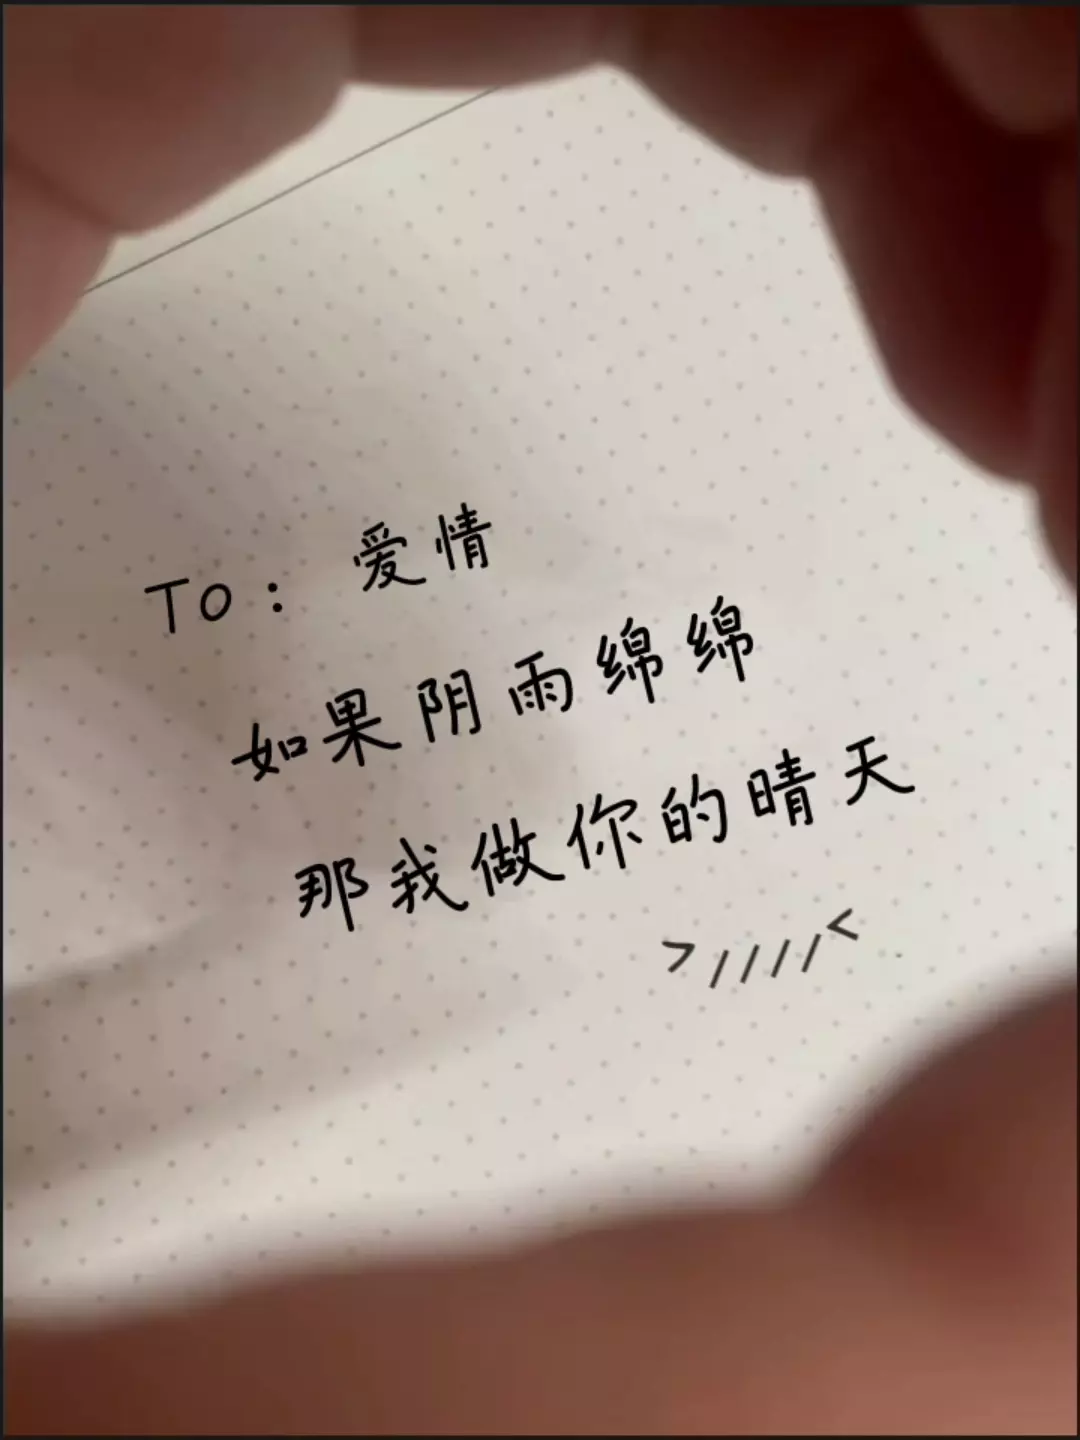 TO：爱情
如果阴雨绵绵
那我做你的晴天
>////<